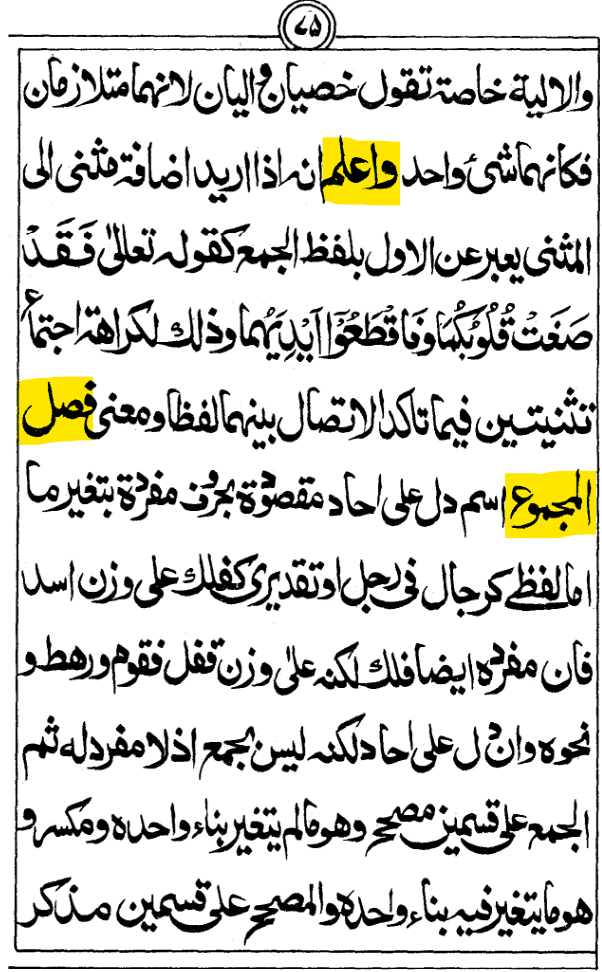 ٤٥
والالية خاصة تقول خصيان واليان لانهما متلازمان
فكانهما شئ واحد واعلم انه اذا اريد اضافة مثنى الى
المثنى يعبر عن الاول بلفظ الجمع كقوله تعالىٰ فَقَدْ
صَغَتْ قُلُوْبُكُمَا وَفَاقْطَعُوْٓا اَيْدِيَهُمَا وذلك لكراهة اجتماع
تثنيتين فيما تاكد الاتصال بينهما لفظا ومعنى فصل
المجموع اسم دل على احاد مقصودة بحروف مفردة بتغير ما
اما لفظى كرجال فى رجل او تقديرى كفلك على وزن اسد
فان مفرده ايضا فلك لكنه علىٰ وزن قفل فقوم ورهط و
نحوه وان دل على احاد لكنه ليس بجمع اذ لا مفرد له ثم
الجمع على قسمين مصحح وهو مالم يتغير بناء واحده ومكسر و
هو ما يتغير فيه بناء واحده والمصحح على قسمين مذكر